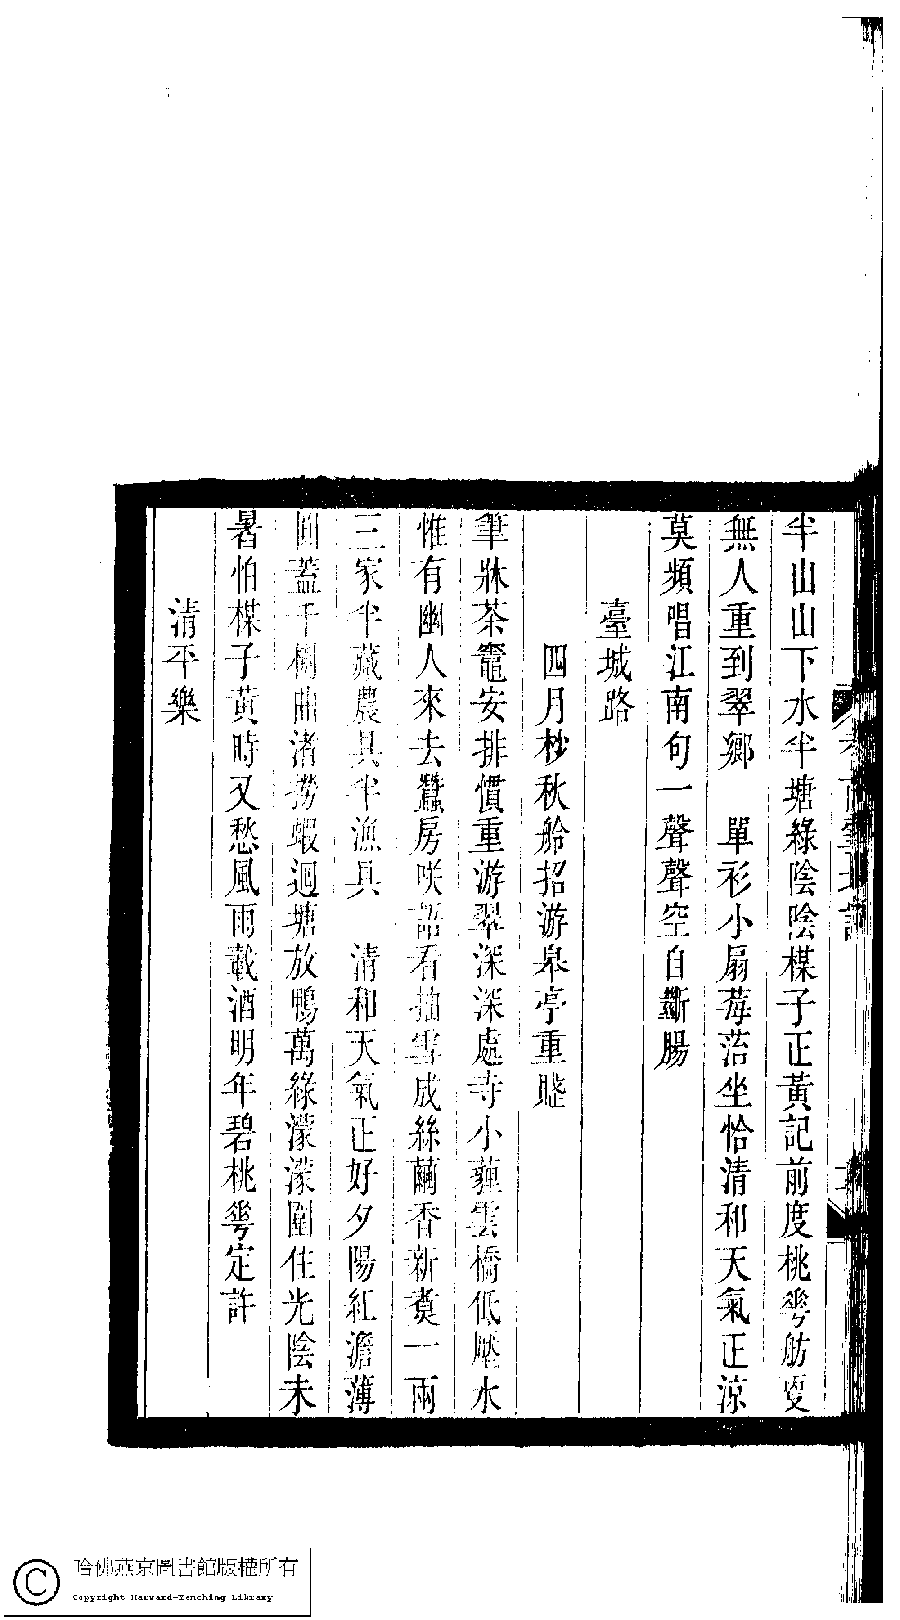 半山山下水半塘綠陰陰楳子正黃記前度桃甹舫更
無人重到翠鄉　單衫小扇莓苔坐恰清和天氣正涼
莫頻唱江南句一聲聲空自斷腸
臺城路
四月杪秋舲招游皋亭重
筆牀茶竈安排慣重游翠深深處寺小藏雲橋低壓水
惟有幽人來去蠶房咲語看抽雪成絲繭香新煑一兩
三家半藏農具半漁具　清和天氣正好夕陽紅澹薄
回蓋千樹曲渚撈蝦迴塘放鴨萬綠濛濛圍住光陰未
暑怕楳子黃時又愁風雨載酒明年碧桃甹定許
清平樂
哈佛燕京圖書館版權所有
Copyright Harvard-Yenching Library